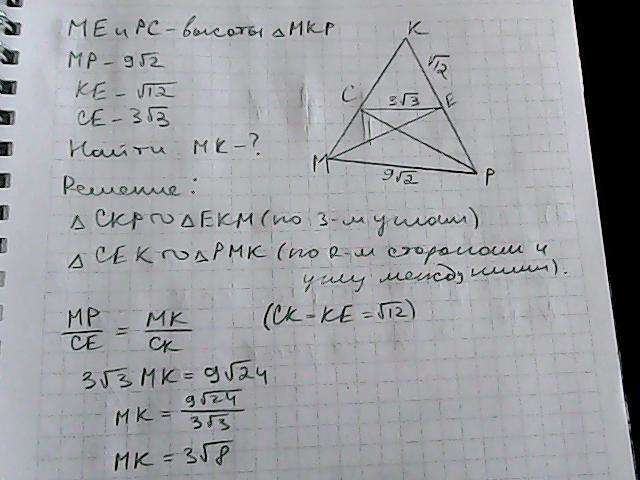 ME и PC - высоты △MKP
MP - 9√2
KE - √12
CE - 3√3
Найти MK - ?
Решение:
△CKP ∾ △EKM (по 3-м углам)
△CEK ∾ △PMK (по 2-м сторонам и
углу между ними).
MP/CE = MK/CK (CK - KE = √12)
3√3 MK = 9√24
MK = 9√24/3√3
MK = 3√8
K
√12
C
3√3
E
M
9√2
P